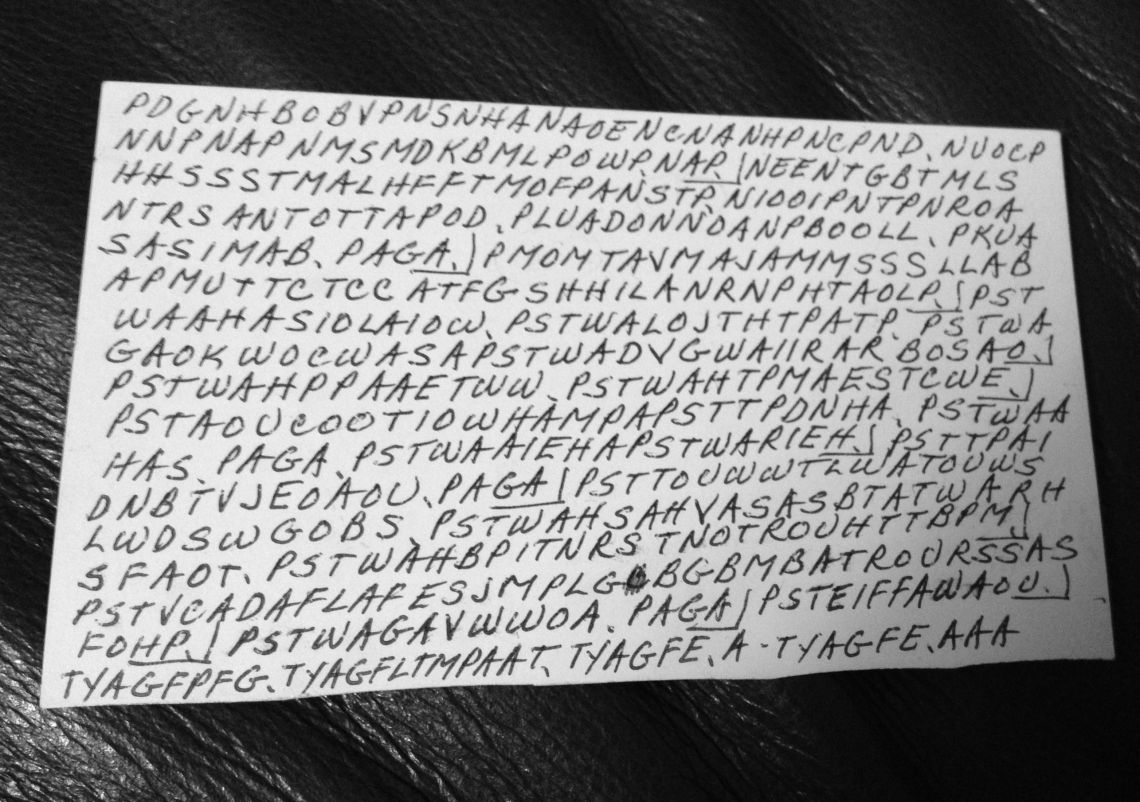 PDGNHBOBVPNSNHANAOENCNANHPNCPND. NUOCP
NNPNAPNMSMDKBMLPOWP. NAP. NEENTGBTMLS
HHSSSTMALHFFTMOFPANSTP. NIOOIPNTPNROA
NTRSANTOTTAPOD. PLUADONNOANPBOOLL. PKUA
SASIMAB. PAGA. PMOMTAVMAJAMMSSSLLAB
APMUTTCTCCATFGSHHILANRNPHTAOLP. PST
WAAHASIOLAIOW. PSTWALOJTHTPATP. PSTWA
GAOKWOCWASAPSTWADVGWAIIRAR BOSAO.
PSTWAHPPAAETWW. PSTWAHTPMAESTCWE.
PSTAOUCOOTIOWHAMPAPSTTPDNHA. PSTWAA
HAS. PAGA. PSTWAAIEHAPSTWARIEH. PSTTPAI
DNBTVJEOAOU. PAGA PSTTOUWWTLWATOUWS
LWDSWGOBS. PSTWAHSAHVASASBTATWARH
SFAOT. PSTWAHBPITNRSTNOTROUHTTBPM.
PSTVCADAFLAFESJMPLGOBGBMBATROURSSAS
FOHP. PSTWAGAVWWOA. PAGA PSTEIFFAWAOU.
TYAGFPFG. TYAGFLTMPAAT. TYAGFE. A-TYAGFE. AAA